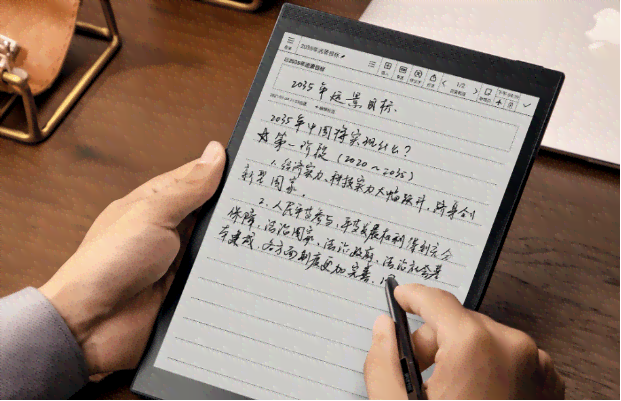 2035年远景目标
2035年远景目标
1/2
2035年远景目标.
2035年中国将实现什么?
☆第一阶段(2020~2035)
1.经济实力、科技实力大幅跃升,跻身创
新型国家。
2.人民平等参与、平等发展权利得到充分
保障,法治国家、法治政府、法治社会基
本建成,各方面制度更加完善.